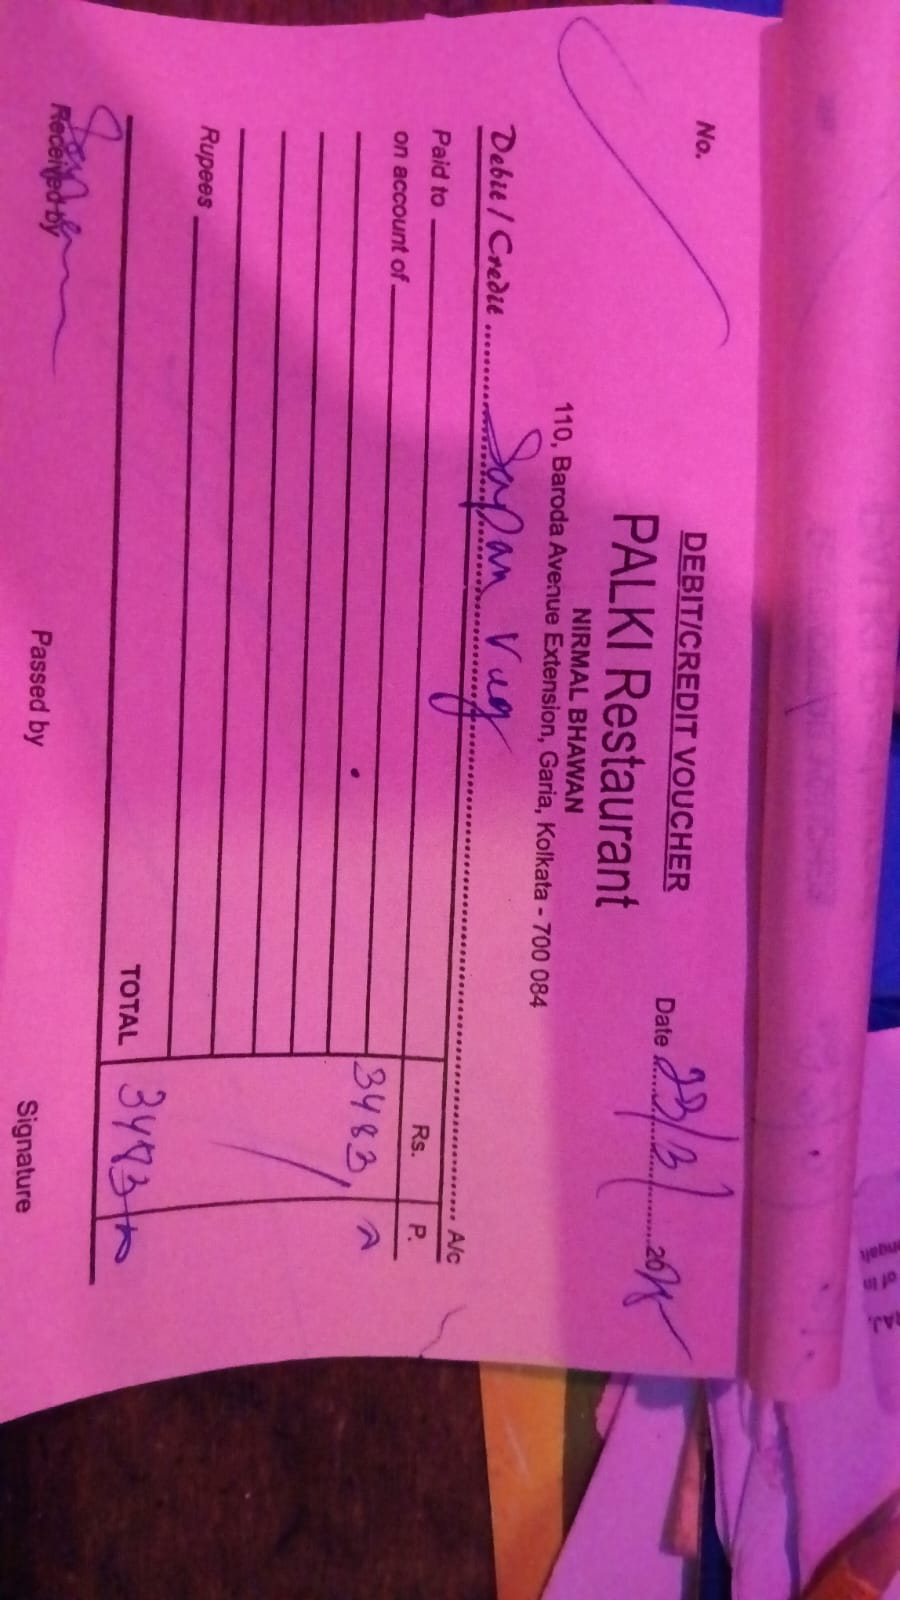 DEBIT/CREDIT VOUCHER
No.
PALKI Restaurant
Date 23/3/ 20
NIRMAL BHAWAN
110, Baroda Avenue Extension, Garia, Kolkata - 700 084
Debit / Credit Sapan Veg A/c
Paid to Rs. P.
on account of
3483
Rupees
TOTAL 3483
Received by Passed by Signature